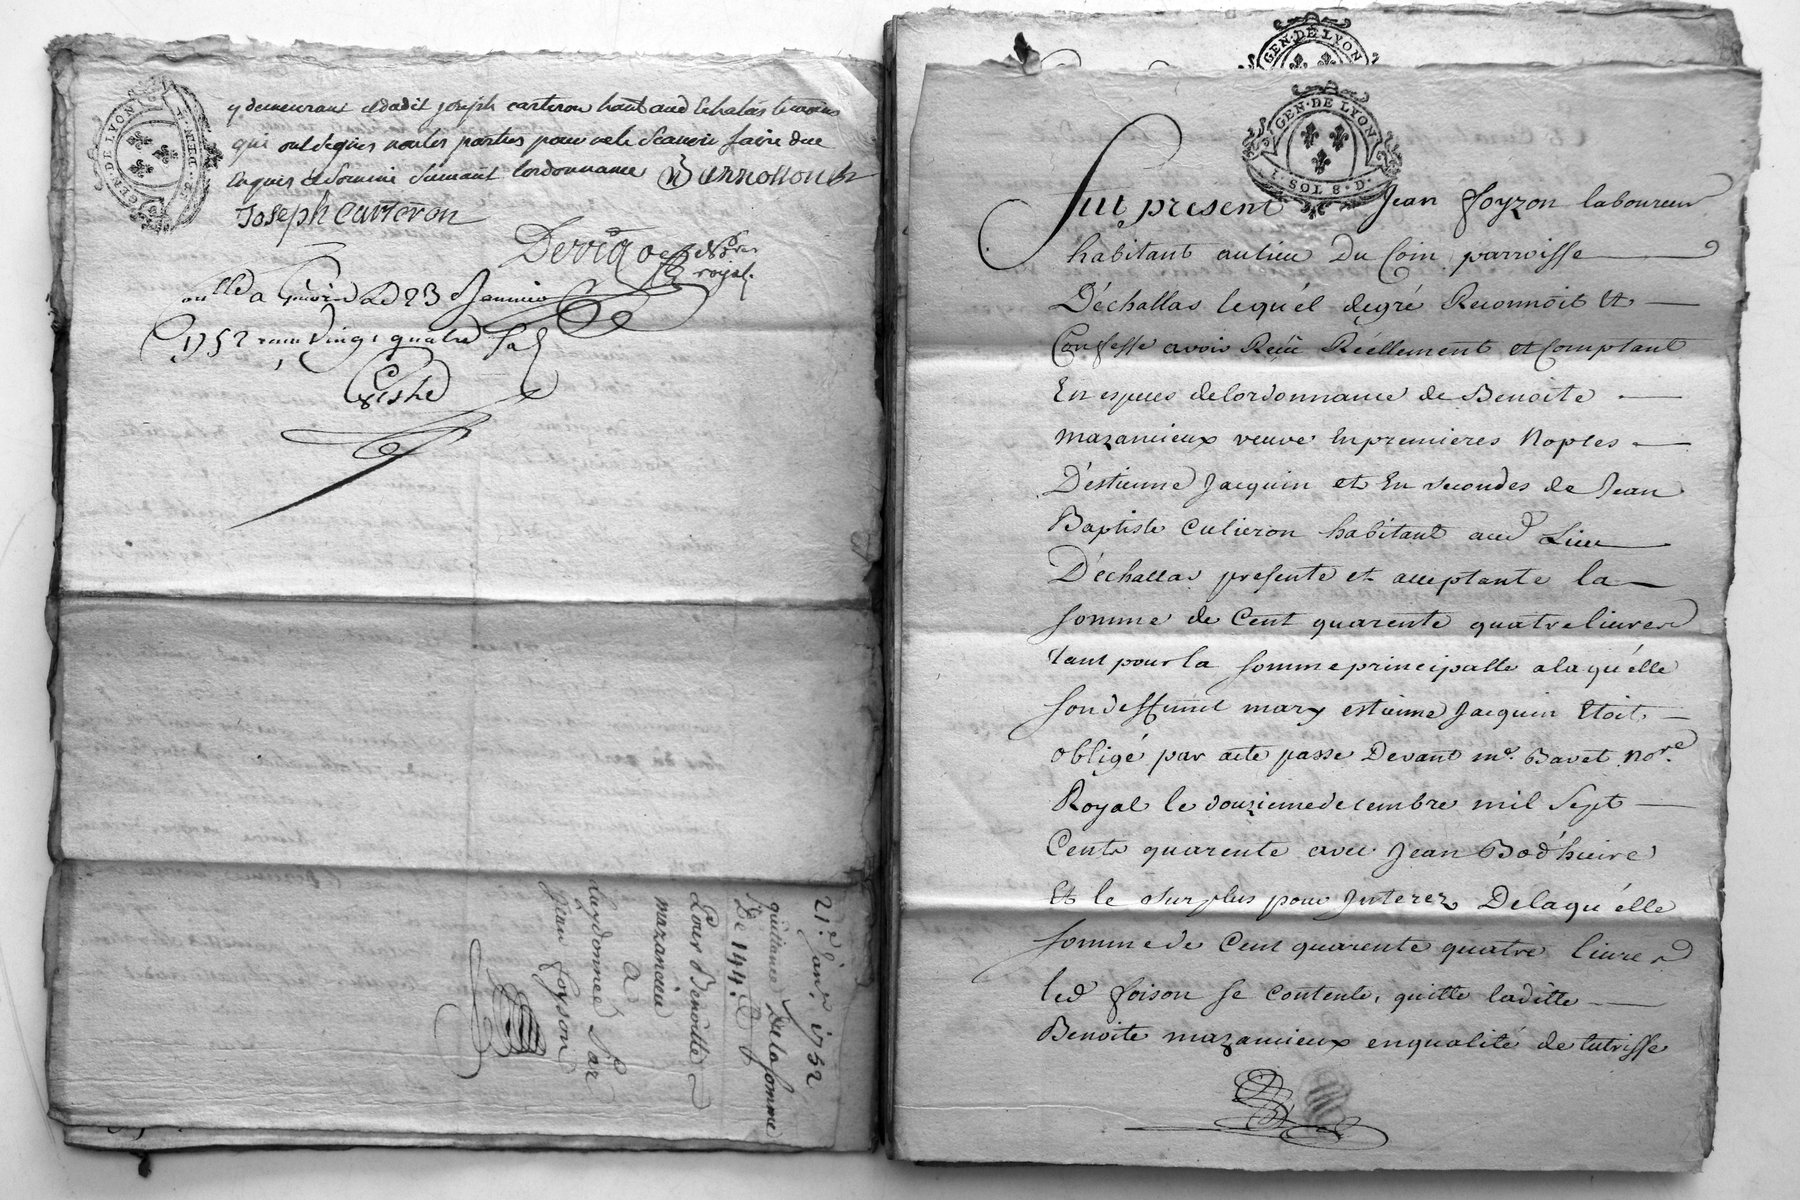 GEN·DE LYON
y demeurant et dudit joseph carteron haut aud Echalas temoins
qui ont signés non les parties pour ne le Scavoir faire due
Enquis et Sommé Suivant Lordonnance
Joseph Carteron
royal
a Givord Le 23 Janvier
1752 vingt quatre Sols
21e Janvr 1752
quittance De la Somme
De 144
Pour Benoitte
mazancieu
a
Luy donnée Par
Jean foyson
GEN·DE LYON
GEN·DE LYON
1·SOLS 8·D·
Fut present Jean Foyzon laboureur
habitant au lieu Du Coin parroisse
D'échallas lequ'el degré Reconnoit Et
Confesse avoir Reçû Réellement et Comptant
En especes delordonnance de Benoite
mazancieux veuve En premieres Nopces
D'estienne Jacquin et En secondes de Jean
Baptiste Culieron habitant aud Lieu
D'échallas presente et acceptante la
somme de Cent quarente quatre livres
tant pour la somme principalle a laqu'elle
son deffunt mary estienne Jacquin Etoit
obligé par acte passe Devant me. Bavet Nore
Royal le douzieme decembre mil Sept
Cents quarente avec Jean
Et le Surplus pour Interez De laqu'elle
somme de Cent quarente quatre livres
led foison se contente, quitte laditte
Benoite mazancieux enqualité de tutrisse